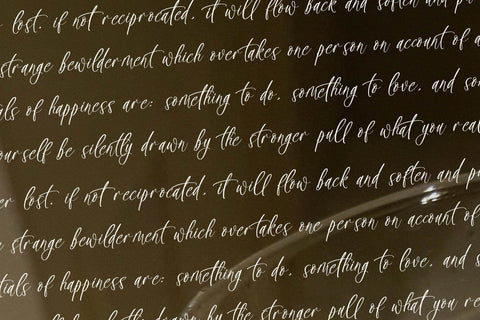 lost. if not reciprocated, it will flow back and soften and
strange bewilderment which overtakes one person on account of a
ials of happiness are: something to do, something to love, and so
ourself be silently drawn by the stronger pull of what you rea
er lost. if not reciprocated, it will flow back and soften and p
strange bewilderment which overtakes one person on account of
tials of happiness are: something to do, something to love, and s
silently drawn by the stronger pull of what you re